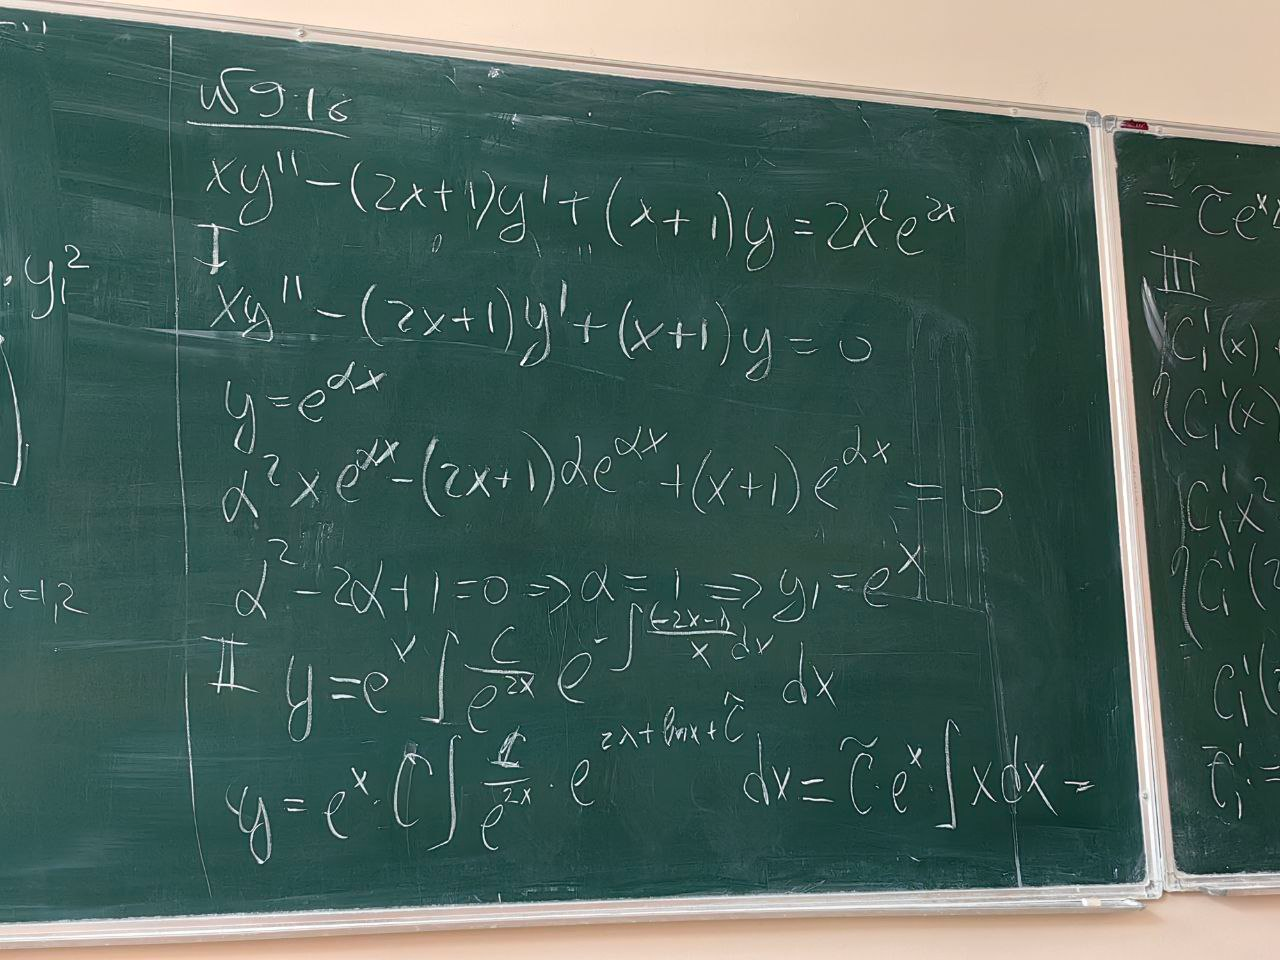 · y₁²
i=1,2
№ 9.16
xy'' − (2x+1)y' + (x+1)y = 2x²e^{2x}
I
xy'' − (2x+1)y' + (x+1)y = 0
y = e^{αx}
α²xe^{αx} − (2x+1)αe^{αx} + (x+1)e^{αx} = 0
α² − 2α + 1 = 0 => α = 1 => y₁ = e^x
II y = e^x ∫ C/e^{2x} e^{−∫ (−2x−1)/x dx} dx
y = e^x · C ∫ 1/e^{2x} · e^{2x + ln x + C̃} dx = C̃ · e^x · ∫ x dx =
= C̃ e^x
III
C₁'(x)
C₁'(x)
C₁'x²
C₁'(2
C₁'(
C₁' =